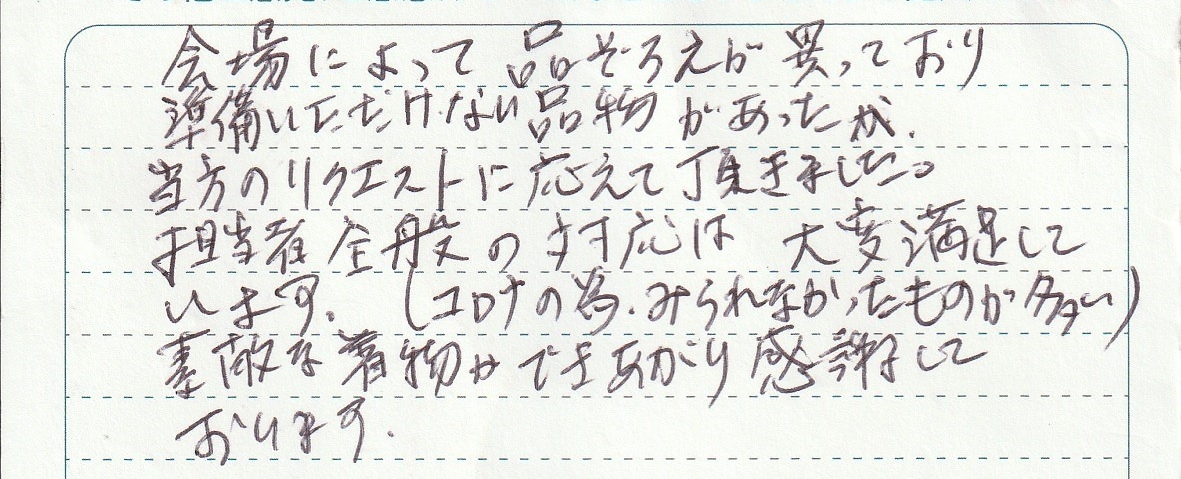 会場によって 品ぞろえが 異っており
準備いただけない品物 があったが、
当方のリクエストに応えて頂きました。
担当者全般の対応は 大変満足して
います。(コロナの為、みられなかったものが多い)
素敵な着物ができあがり感謝して
おります。